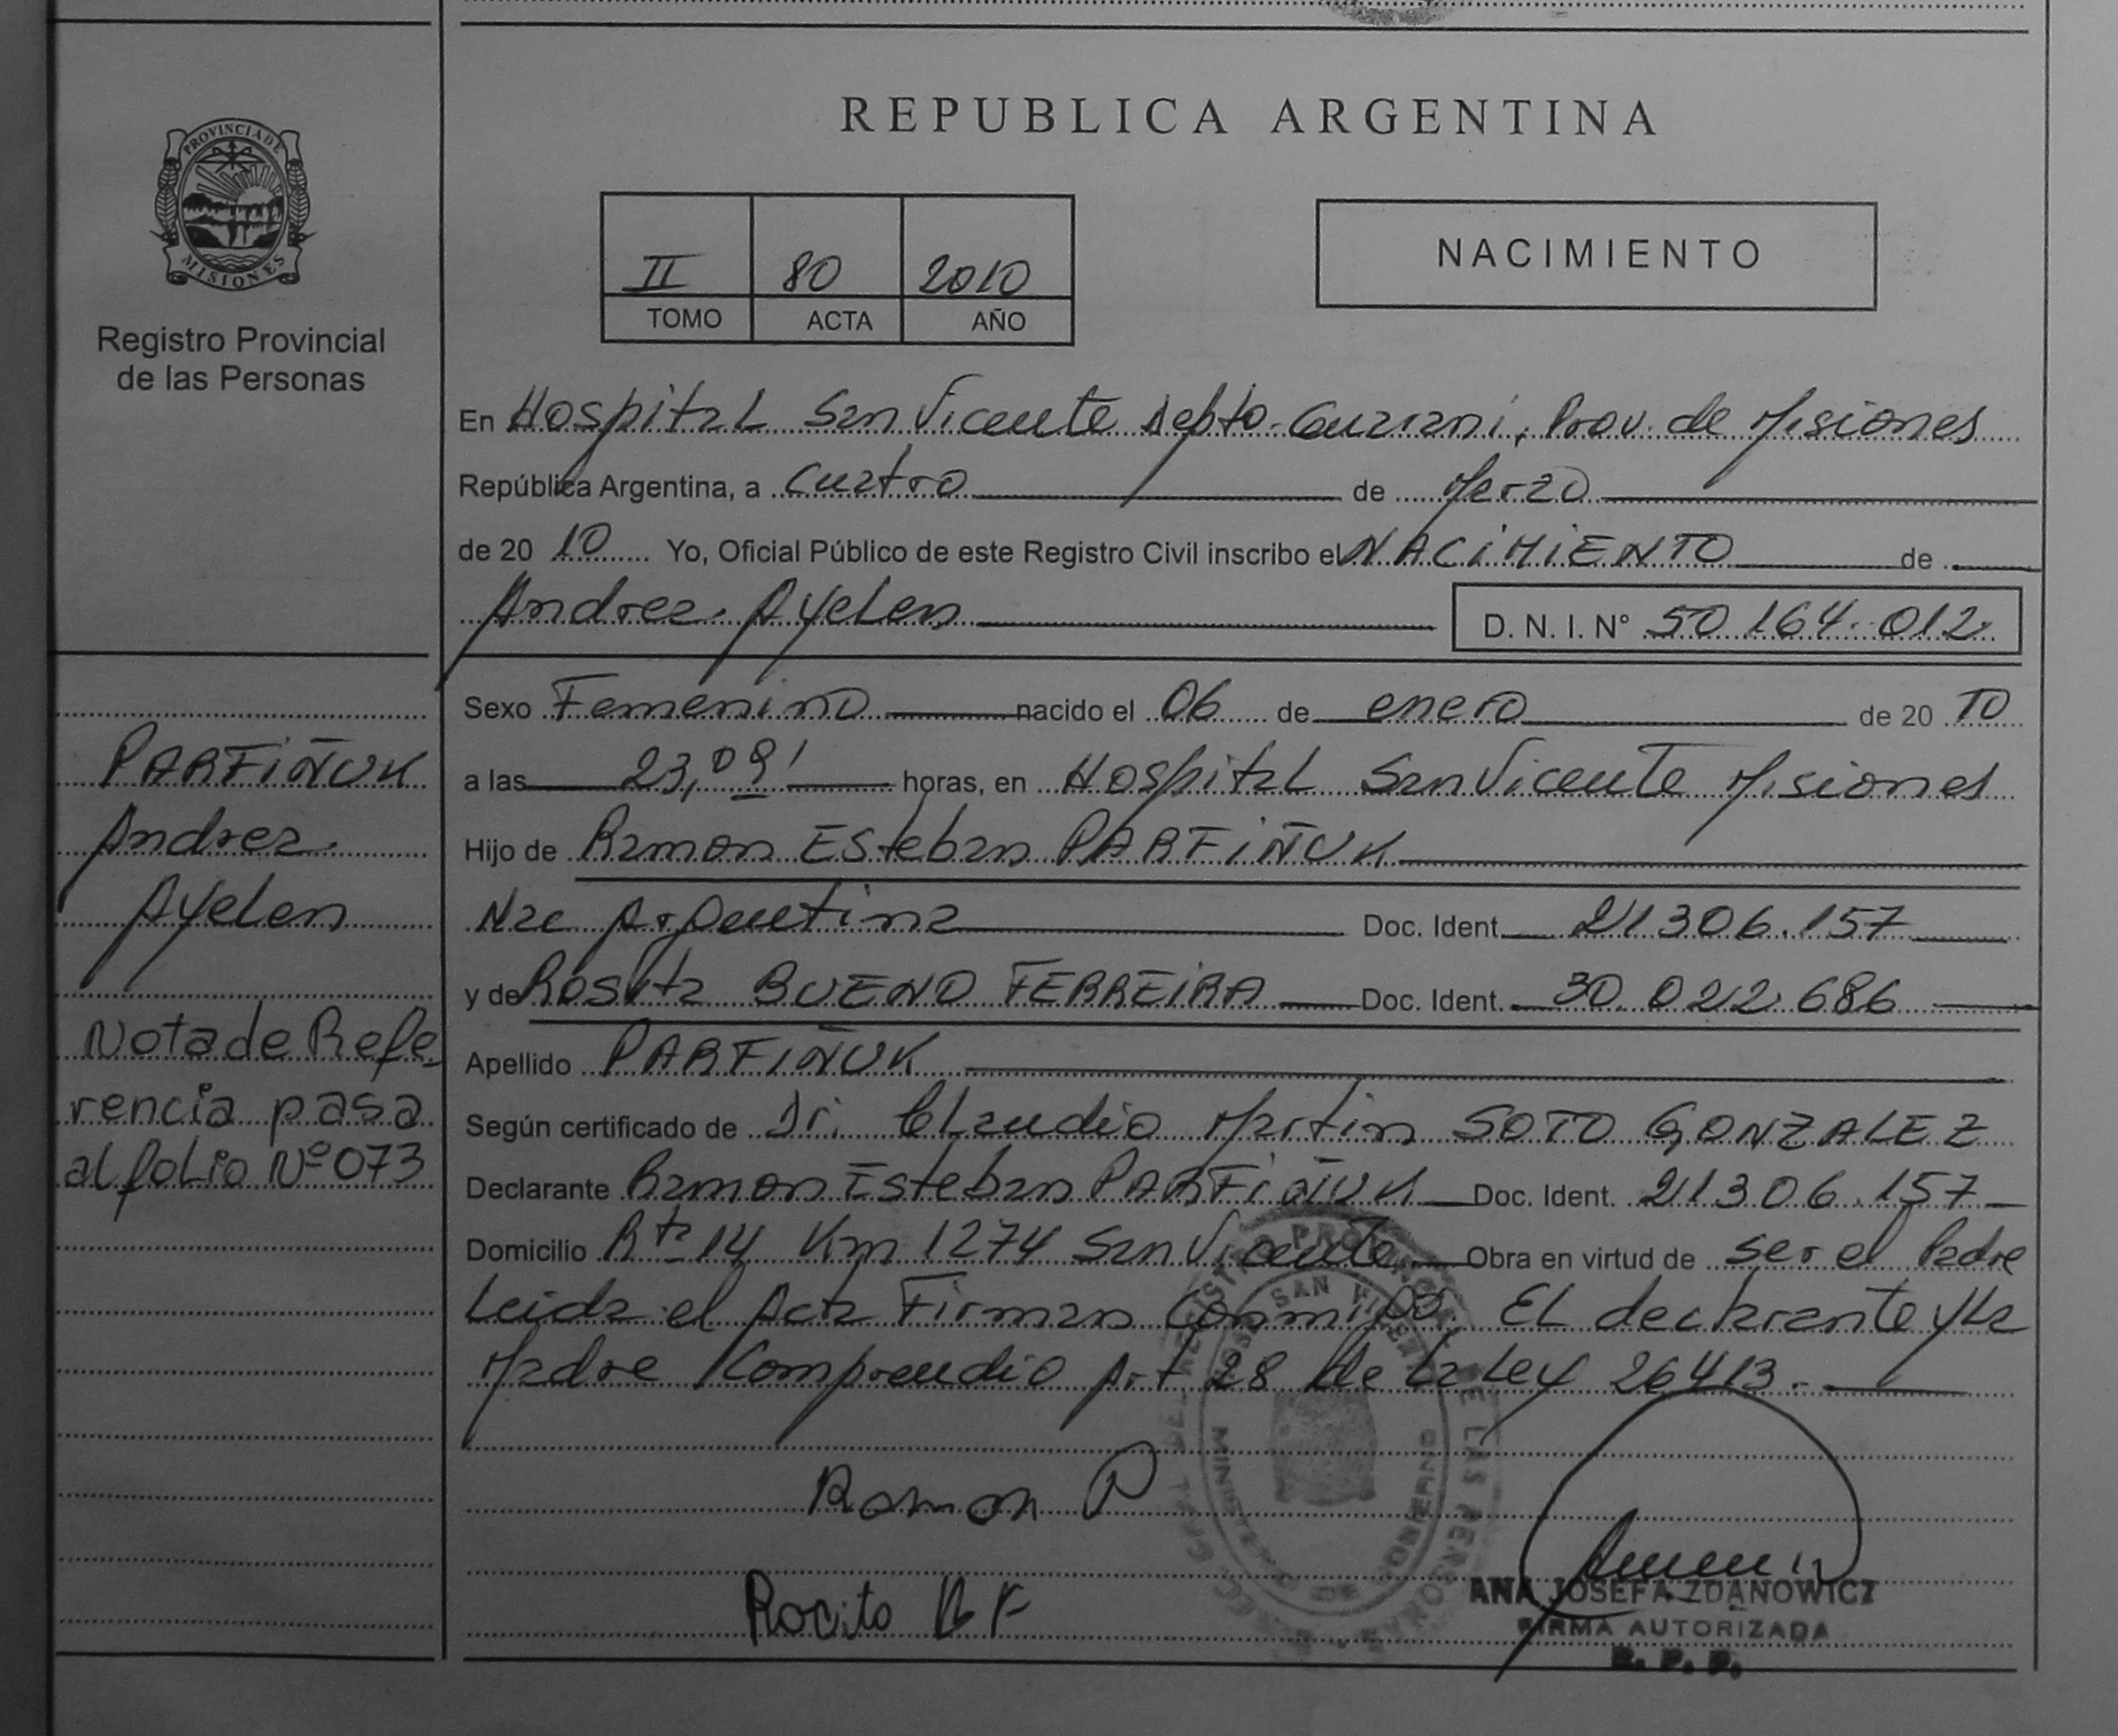 REPUBLICA ARGENTINA
PROVINCIA DE
MISIONES
Registro Provincial
de las Personas
II 80 2010
TOMO ACTA AÑO
NACIMIENTO
En Hospital San Vicente Depto. Guarani, Prov. de Misiones
República Argentina, a cuatro de Marzo
de 20 10 Yo, Oficial Público de este Registro Civil inscribo el NACIMIENTO de
Andrea Ayelen D. N. I. N° 50 164.012
Sexo Femenino nacido el 06 de enero de 20 10
a las 23,09' horas, en Hospital San Vicente Misiones
Hijo de Ramon Esteban PARFIÑUK
Nac Argentina Doc. Ident. 21306.157
y de Rosita BUENO FERREIRA Doc. Ident. 30.022.686
Apellido PARFIÑUK
Según certificado de Dr. Claudio Martin SOTO GONZALEZ
Declarante Ramon Esteban PARFIÑUK Doc. Ident. 21306.157
Domicilio Rta 14 Km 1274 San Vicente Obra en virtud de ser el Padre
Leida el Acta Firman Conmigo. El declarante y la
Madre Comprendio Art 28 de la Ley 26413.
PARFIÑUK
Andrea
Ayelen
Nota de Refe-
rencia pasa
al folio Nº 073
Ramon P
Rocito B F
ANA JOSEFA ZDANOWICZ
FIRMA AUTORIZADA
R. P. P.